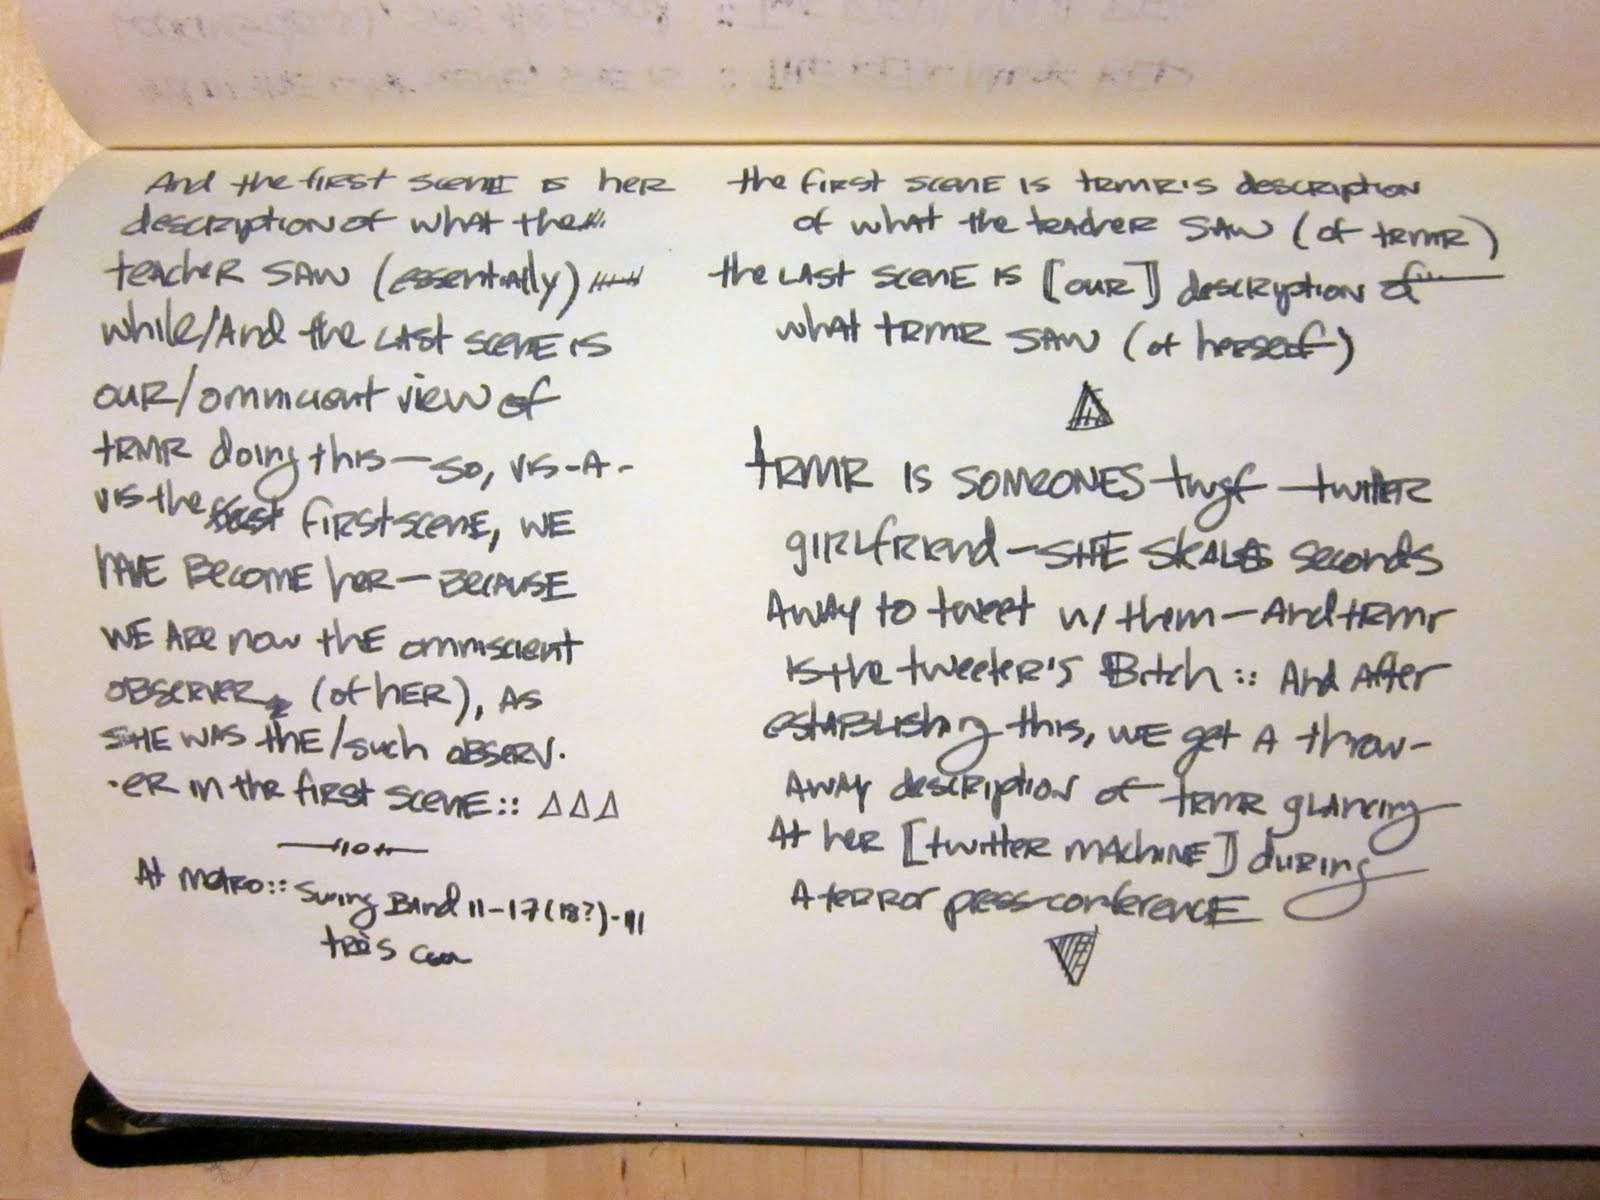 And the first scene is her
description of what the
teacher saw (essentially)
while/And the last scene is
our/omniscient view of
trmr doing this — so, vis-a-
vis the first scene, we
have become her — because
we are now the omniscient
observer (of her), as
she was the/such observ-
-er in the first scene :: △△△
At metro :: Swing Band 11-17(18?)-11
très
the first scene is trmr's description
of what the teacher saw (of trmr)
the last scene is [our] description of
what trmr saw (of herself)
trmr is someones twgf — twitter
girlfriend — she steals seconds
away to tweet w/ them — And trmr
is the tweeter's Bitch :: And after
establishing this, we get a throw-
away description of trmr glancing
At her [twitter machine] during
A terror press conference